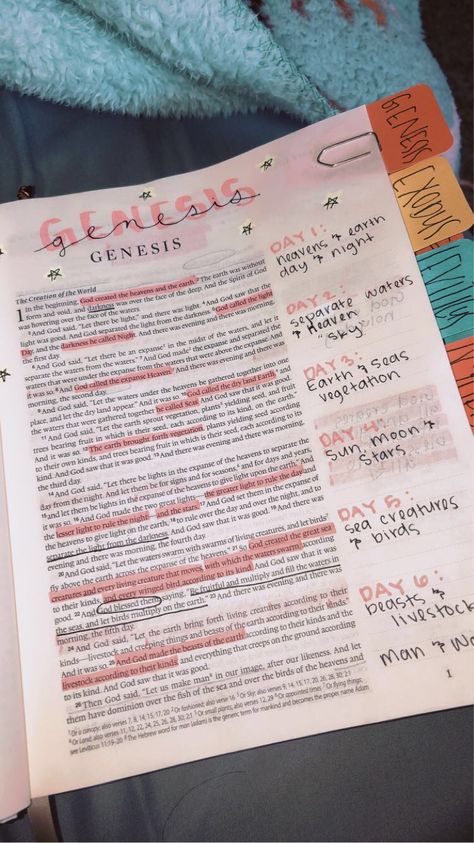 GENESIS
genesis
GENESIS
The Creation of the World
1 In the beginning, God created the heavens and the earth. 2 The earth was without
form and void, and darkness was over the face of the deep. And the Spirit of God
was hovering over the face of the waters.
3 And God said, "Let there be light," and there was light. 4 And God saw that the
light was good. And God separated the light from the darkness. 5 God called the light
Day, and the darkness he called Night. And there was evening and there was morning,
the first day.
6 And God said, "Let there be an expanse in the midst of the waters, and let it
separate the waters from the waters." 7 And God made the expanse and separated the
waters that were under the expanse from the waters that were above the expanse. And
it was so. 8 And God called the expanse Heaven. And there was evening and there was
morning, the second day.
9 And God said, "Let the waters under the heavens be gathered together into one
place, and let the dry land appear." And it was so. 10 God called the dry land Earth, and
the waters that were gathered together he called Seas. And God saw that it was good.
11 And God said, "Let the earth sprout vegetation, plants yielding seed, and fruit
trees bearing fruit in which is their seed, each according to its kind, on the earth."
And it was so. 12 The earth brought forth vegetation, plants yielding seed according
to their own kinds, and trees bearing fruit in which is their seed, each according to its
kind. And God saw that it was good. 13 And there was evening and there was morning,
the third day.
14 And God said, "Let there be lights in the expanse of the heavens to separate the
day from the night. And let them be for signs and for seasons, and for days and years,
15 and let them be lights in the expanse of the heavens to give light upon the earth." And
it was so. 16 And God made the two great lights—the greater light to rule the day and
the lesser light to rule the night—and the stars. 17 And God set them in the expanse of
the heavens to give light on the earth, 18 to rule over the day and over the night, and to
separate the light from the darkness. And God saw that it was good. 19 And there was
evening and there was morning, the fourth day.
20 And God said, "Let the waters swarm with swarms of living creatures, and let birds
fly above the earth across the expanse of the heavens." 21 So God created the great sea
creatures and every living creature that moves, with which the waters swarm, according
to their kinds, and every winged bird according to its kind. And God saw that it was
good. 22 And God blessed them, saying, "Be fruitful and multiply and fill the waters in
the seas, and let birds multiply on the earth." 23 And there was evening and there was
morning, the fifth day.
24 And God said, "Let the earth bring forth living creatures according to their
kinds—livestock and creeping things and beasts of the earth according to their kinds."
And it was so. 25 And God made the beasts of the earth according to their kinds and the
livestock according to their kinds, and everything that creeps on the ground according
to its kind. And God saw that it was good.
26 Then God said, "Let us make man in our image, after our likeness. And let
them have dominion over the fish of the sea and over the birds of the heavens and
see Leviticus 11:19-20 The Hebrew word for man (adam) is the generic term for mankind and becomes the proper name Adam
DAY 1:
heavens & earth
day & night
DAY 2:
separate waters
& Heaven
"sky"
DAY 3:
Earth & Seas
vegetation
DAY 4:
sun, moon &
stars
DAY 5:
sea creatures
& birds
DAY 6:
beasts &
livestock
man & wo
1
GENESIS
EXODUS